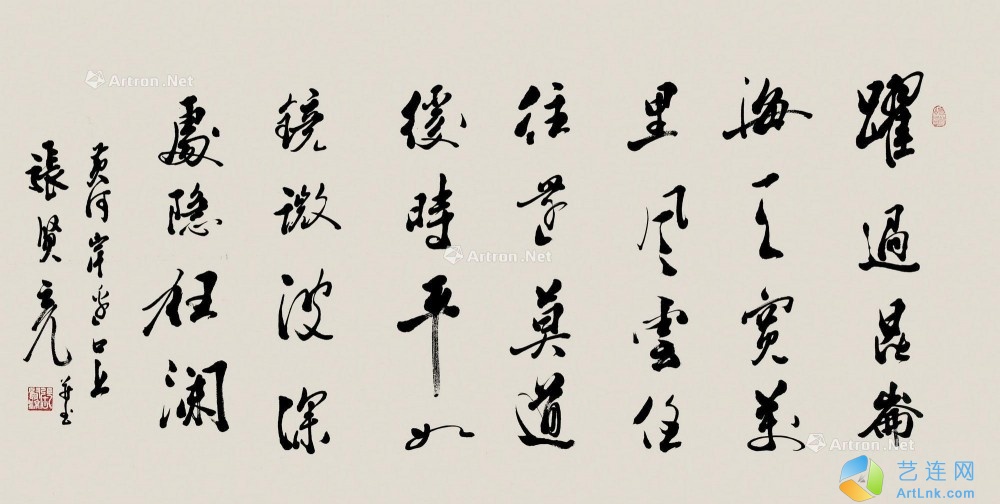 躍過昆崙
海天寬萬
里風雲任
往還莫道
緩時平如
鏡微波深
處隱狂瀾
黄河岸边口占并書
張賢亮
Artron.Net
Artron.Net
Artron.Net
艺连网
ArtLnk.com